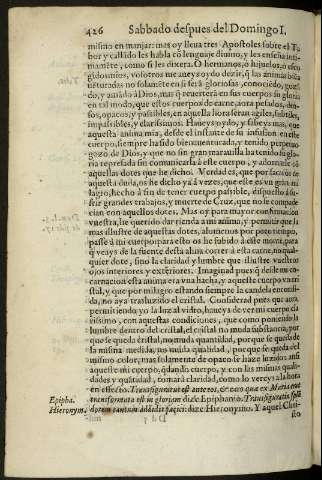 426 Sabbado despues del Domingo I.
mismo en manjar: mas oy lleva tres Apostoles sobre el Ta
bor y callido les habla có lenguaje divino, y les enseña
como si les dixera. O hermanos, ò hijuelos, ò
vosotros me aveys oydo dezir, q̃ las animas
naturadas no solamente en si será gloriosas, conociédo,
do, y amádo à Dios, mas q̃ revertera en sus cuerpos su gloria
en tal modo, que estos cuerpos de carne, aora pesados, den-
sos, opacos, y passibles, en aquella hora seran agiles, subtiles,
impassibles, y clarissimos. Haveys oydo, y sabeys mas, que
aquesta anima mia, desde el instante de su infusion en este
cuerpo, siempre ha sido bienaventurada, y tenido perpetuo
gozo de Dios, y que no sin gran maravilla ha tenido su glo
ria represada sin comunicarla à este cuerpo, y adornale có
aquellas dotes que he dicho. Verdad es, que por
aquesta duda, os he dicho ya à vezes, que este es un gran mi
lagro, hecho à fin de tener cuerpo passible, dispuesto à
frir grandes trabajos, y muerte de Cruz, que no se compade
cian con aquellos dotes. Mas oy para mayor confirmacion
vuestra, he querido dar rienda à mi anima, y permitir que la
mas illustre de aquestas dotes, alomenos por poco tiempo,
passe à mi cuerpo para esto os he subido à este monte, para
q̃ veays de la fuente desta alma correr à esta carne, no qual
quier dote, sino la claridad y lumbre que illustre vuestros
ojos interiores y exteriores. Imaginad pues q̃ desde mi en-
carnacion esta anima era una hacha, y aqueste cuerpo un cri
stal, y que por milagro estando siempre la candela entendi-
da, no aya trasluzido el cristal. Considerad pues que aora
permitiendo yo la luz al vidro, haueys de ver mi cuerpo cla
rissimo, con aquestas condiciones, que como poniendo la
lumbre dentro del cristal, el cristal no muda substancia, por
que se queda cristal, no muda quantidad, porque se queda de
la misma medida, no muda qualidad, porque se queda
mismo color, mas solamente de opaco se haze luzido: assi
aqueste mi cuerpo, quedando cuerpo, y con las mismas quali
dades y quãtidad, tomará claridad, como lo vereys a la hora
en effecto. Transfiguratus est ante eos, & caro qua ex Maria erat
Epipha. transformata est in gloriam dize Epiphanio. Transfiguratio
Hieronym. dorem tantum addidit faciei: dize Hieronymo. Y aquel Chri
sto